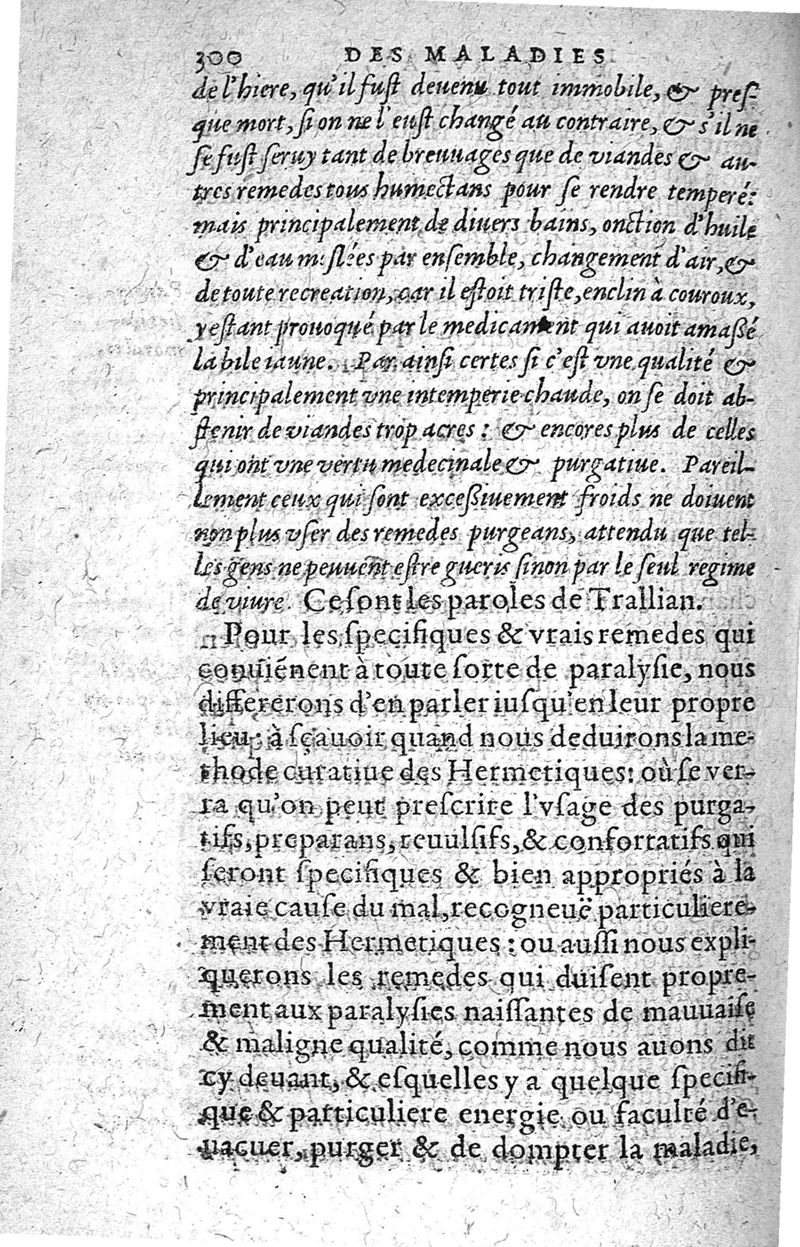 300 DES MALADIES
de l'hiere, qu'il fust deuenu tout immobile, & pres-
que mort, si on ne l'eust changé au contraire, & s'il ne
se fust seruy tant de breuuages que de viandes & au-
tres remedes tous humectans pour se rendre temperé:
mais principalement de diuers bains, onction d'huile
& d'eau meslées par ensemble, changement d'air, &
de toute recreation, car il estoit triste, enclin à couroux,
y estant prouoqué par le medicament qui auoit amassé
la bile iaune. Par ainsi certes si c'est vne qualité &
principalement vne intemperie chaude, on se doit ab-
stenir de viandes trop acres: & encores plus de celles
qui ont vne vertu medecinale & purgatiue. Pareil-
lement ceux qui sont excessiuement froids ne doiuent
non plus vser des remedes purgeans, attendu que tel-
les gens ne peuuent estre gueris sinon par le seul regime
de viure. Ce sont les paroles de Trallian.
Pour les specifiques & vrais remedes qui
conuiénent à toute sorte de paralysie, nous
differerons d'en parler iusqu'en leur propre
lieu: à sçauoir quand nous deduirons la me-
thode curatiue des Hermetiques: où se ver-
ra qu'on peut prescrire l'vsage des purga-
tifs, preparans, reuulsifs, & confortatifs qui
seront specifiques & bien appropriés à la
vraie cause du mal, recogneuë particuliere-
ment des Hermetiques: ou aussi nous expli-
querons les remedes qui duisent propre-
ment aux paralysies naissantes de mauuaise
& maligne qualité, comme nous auons dit
cy deuant, & esquelles y a quelque specifi-
que & particuliere energie ou faculté d'e-
uacuer, purger & de dompter la maladie,